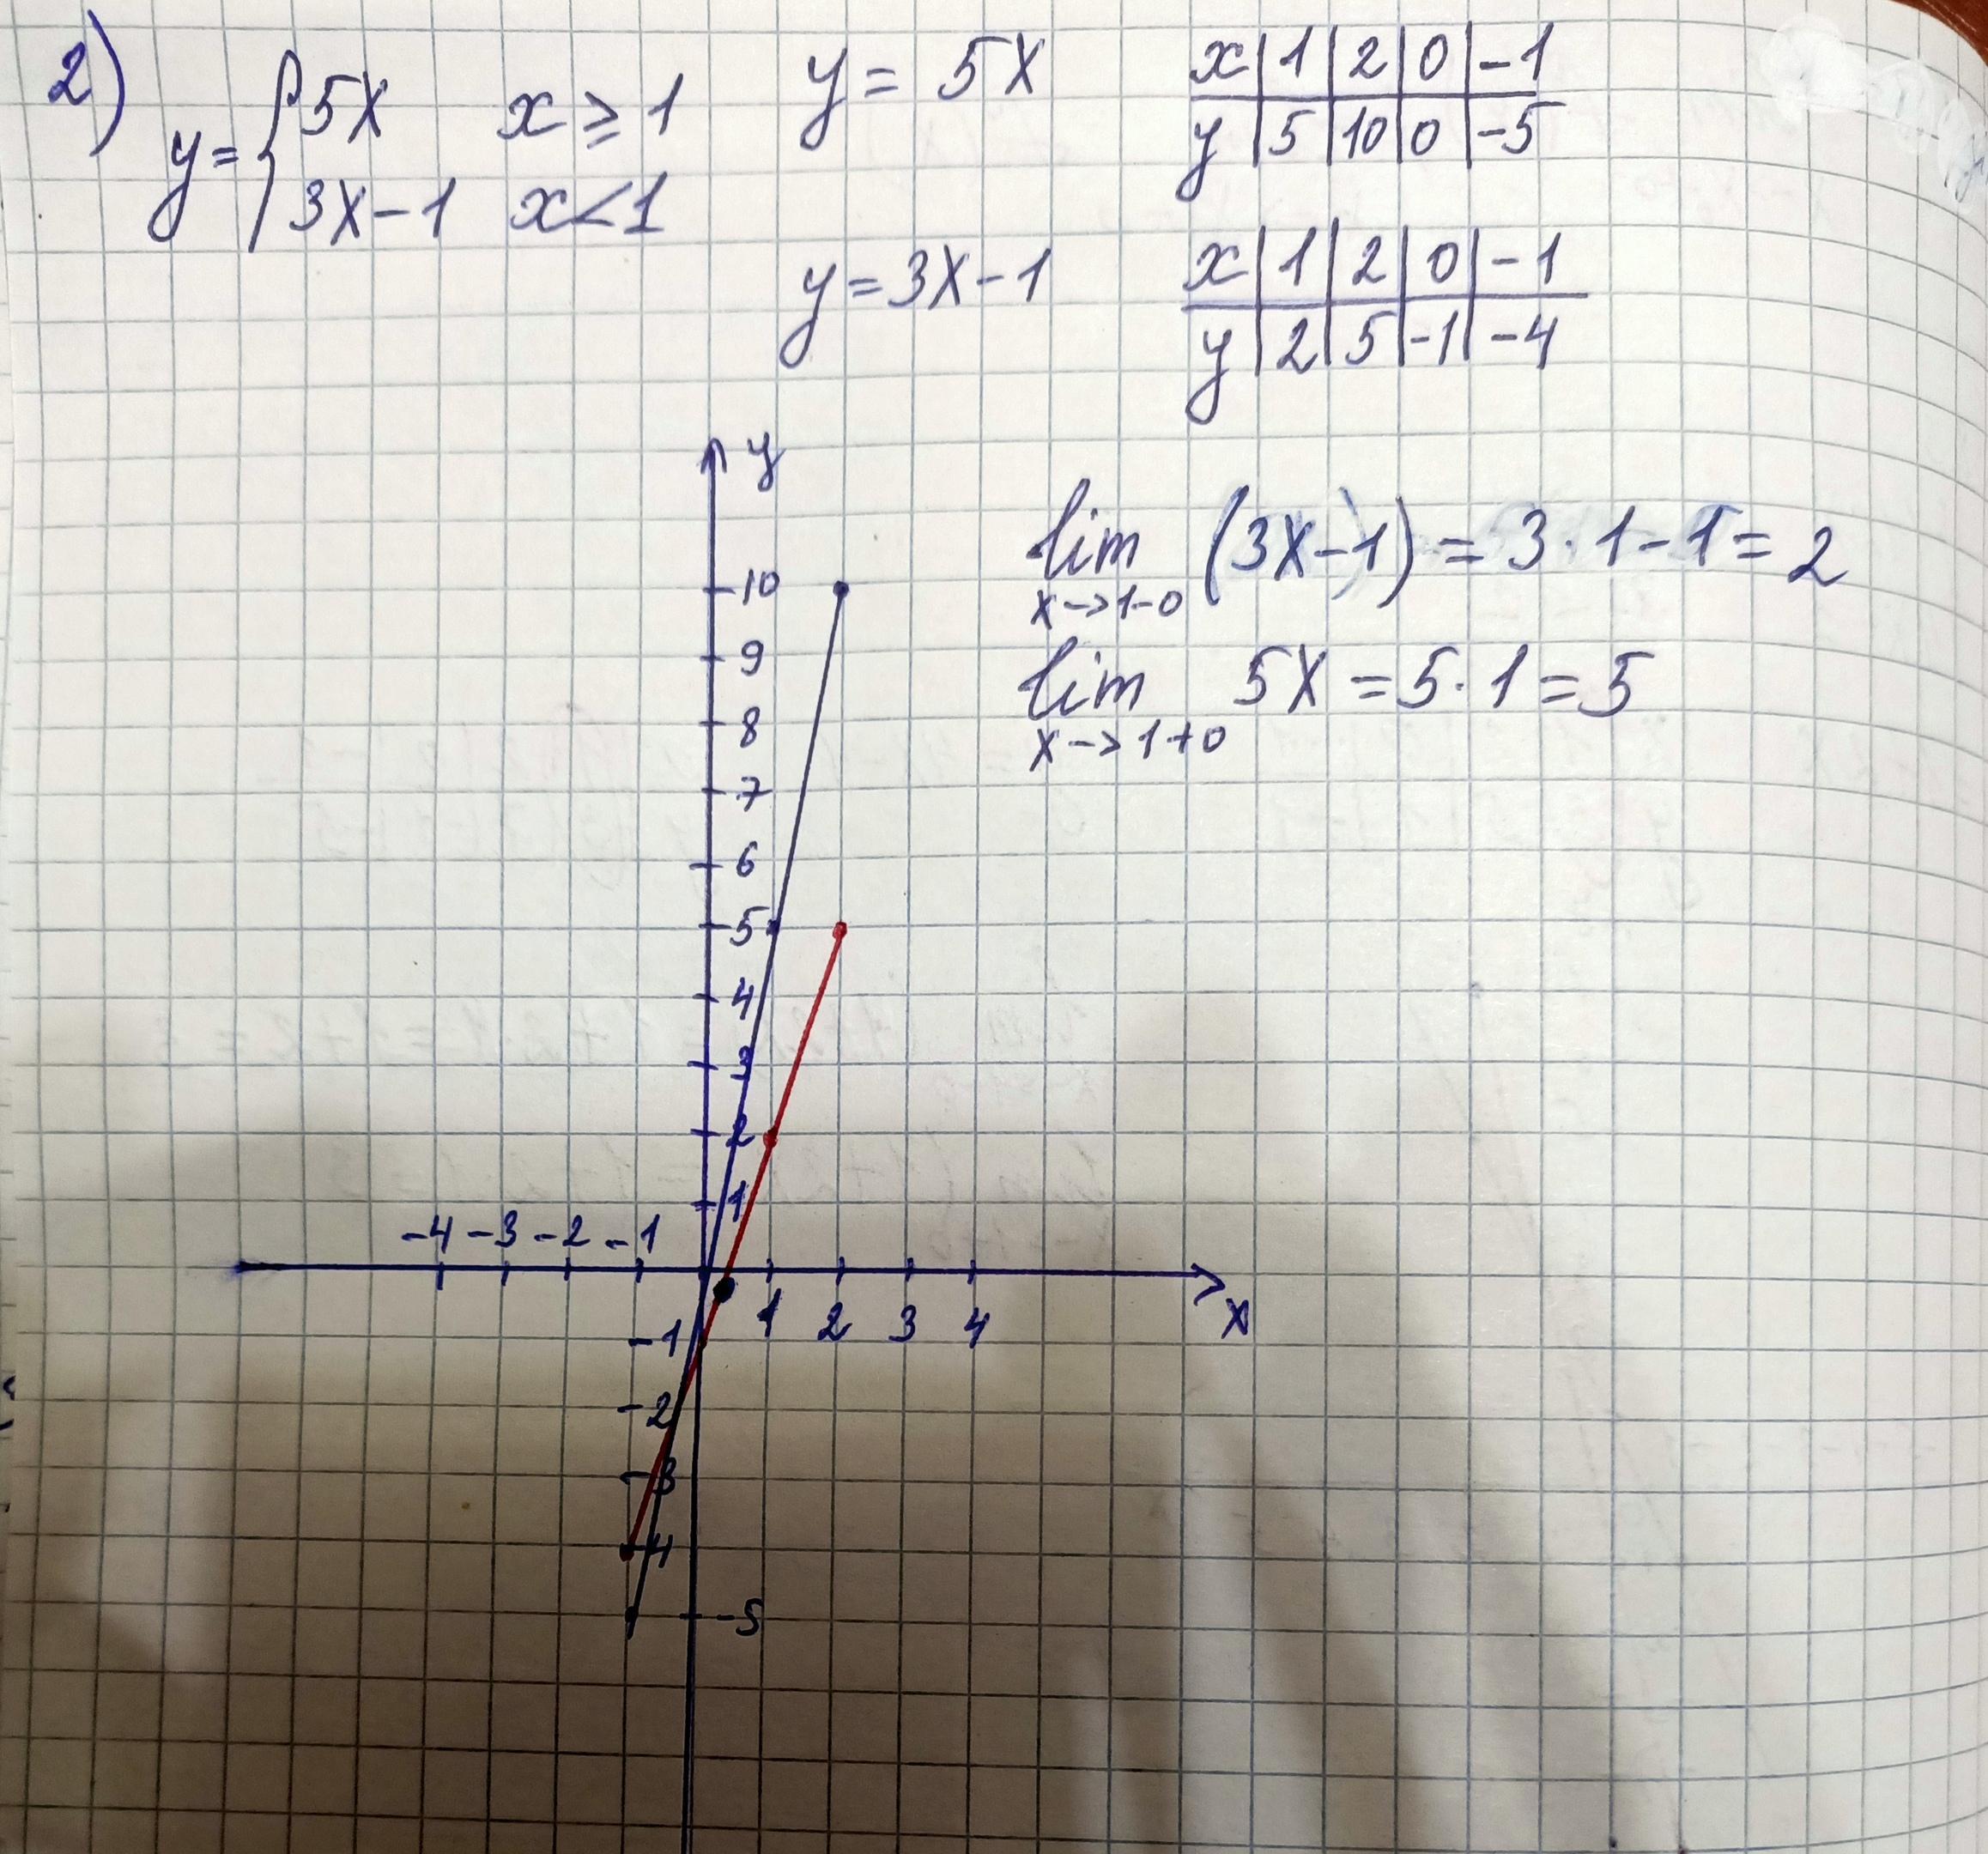 2)
y = { 5x x ≥ 1
3x - 1 x < 1
y = 5x
x | 1 | 2 | 0 | -1
y | 5 | 10 | 0 | -5
y = 3x - 1
x | 1 | 2 | 0 | -1
y | 2 | 5 | -1 | -4
lim (3x-1) = 3·1-1 = 2
x→1-0
lim 5x = 5·1 = 5
x→1+0
y
10
9
8
7
6
5
4
3
2
1
-4 -3 -2 -1
1 2 3 4 x
-1
-2
-3
-4
-5